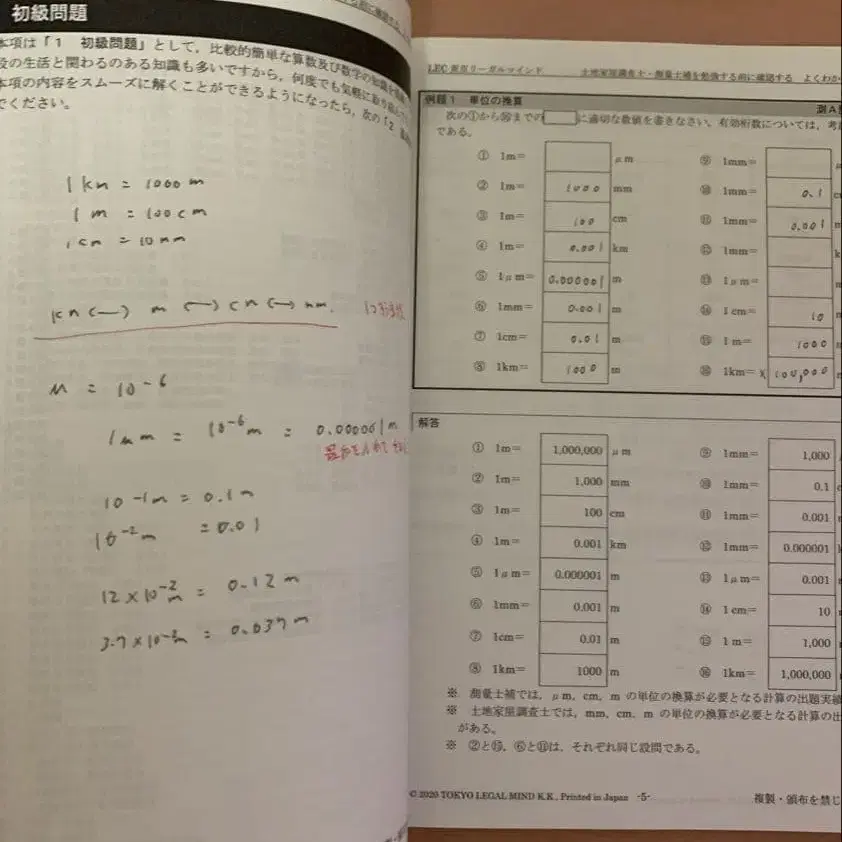 初級問題
本項は「1 初級問題」として，比較的簡単な算数及び数学の知識を
段の生活と関わるのある知識も多いですから，何度でも気軽に取り
本項の内容をスムーズに解くことができるようになったら，次の「2
でください。
1km = 1000m
1m = 100cm
1cm = 10mm
km ⟷ m ⟷ cm ⟷ mm.
μ = 10⁻⁶
1μm = 10⁻⁶m = 0.000001m
10⁻¹m = 0.1m
10⁻²m = 0.01
12×10⁻²m = 0.12m
= 0.037m
LEC東京リーガルマインド 土地家屋調査士・測量士補を勉強する前に確認する よくわか
例題1 単位の換算 測A
次の①から⑯までの□に適切な数値を書きなさい。有効桁数については，考
である。
① 1m= μm ⑨ 1mm=
② 1m= 1000 mm ⑩ 1mm= 0.1
③ 1m= 100 cm ⑪ 1mm= 0.001
④ 1m= 0.001 km ⑫ 1mm=
⑤ 1μm= 0.000001 m ⑬ 1μm=
⑥ 1mm= 0.001 m ⑭ 1cm= 10
⑦ 1cm= 0.01 m ⑮ 1m= 1000
⑧ 1km= 1000 m ⑯ 1km= x 100,000
解答
① 1m= 1,000,000 μm ⑨ 1mm= 1,000
② 1m= 1,000 mm ⑩ 1mm= 0.1
③ 1m= 100 cm ⑪ 1mm= 0.001
④ 1m= 0.001 km ⑫ 1mm= 0.000001
⑤ 1μm= 0.000001 m ⑬ 1μm= 0.001
⑥ 1mm= 0.001 m ⑭ 1cm= 10
⑦ 1cm= 0.01 m ⑮ 1m= 1,000
⑧ 1km= 1000 m ⑯ 1km= 1,000,000
※ 測量士補では，μm，cm，mの単位の換算が必要となる計算の出題実績
※ 土地家屋調査士では，mm，cm，mの単位の換算が必要となる計算の出
がある。
※ ②と⑮，⑥と⑪は，それぞれ同じ設問である。
© 2020 TOKYO LEGAL MIND K.K., Printed in Japan -5- 複製・頒布を禁じ